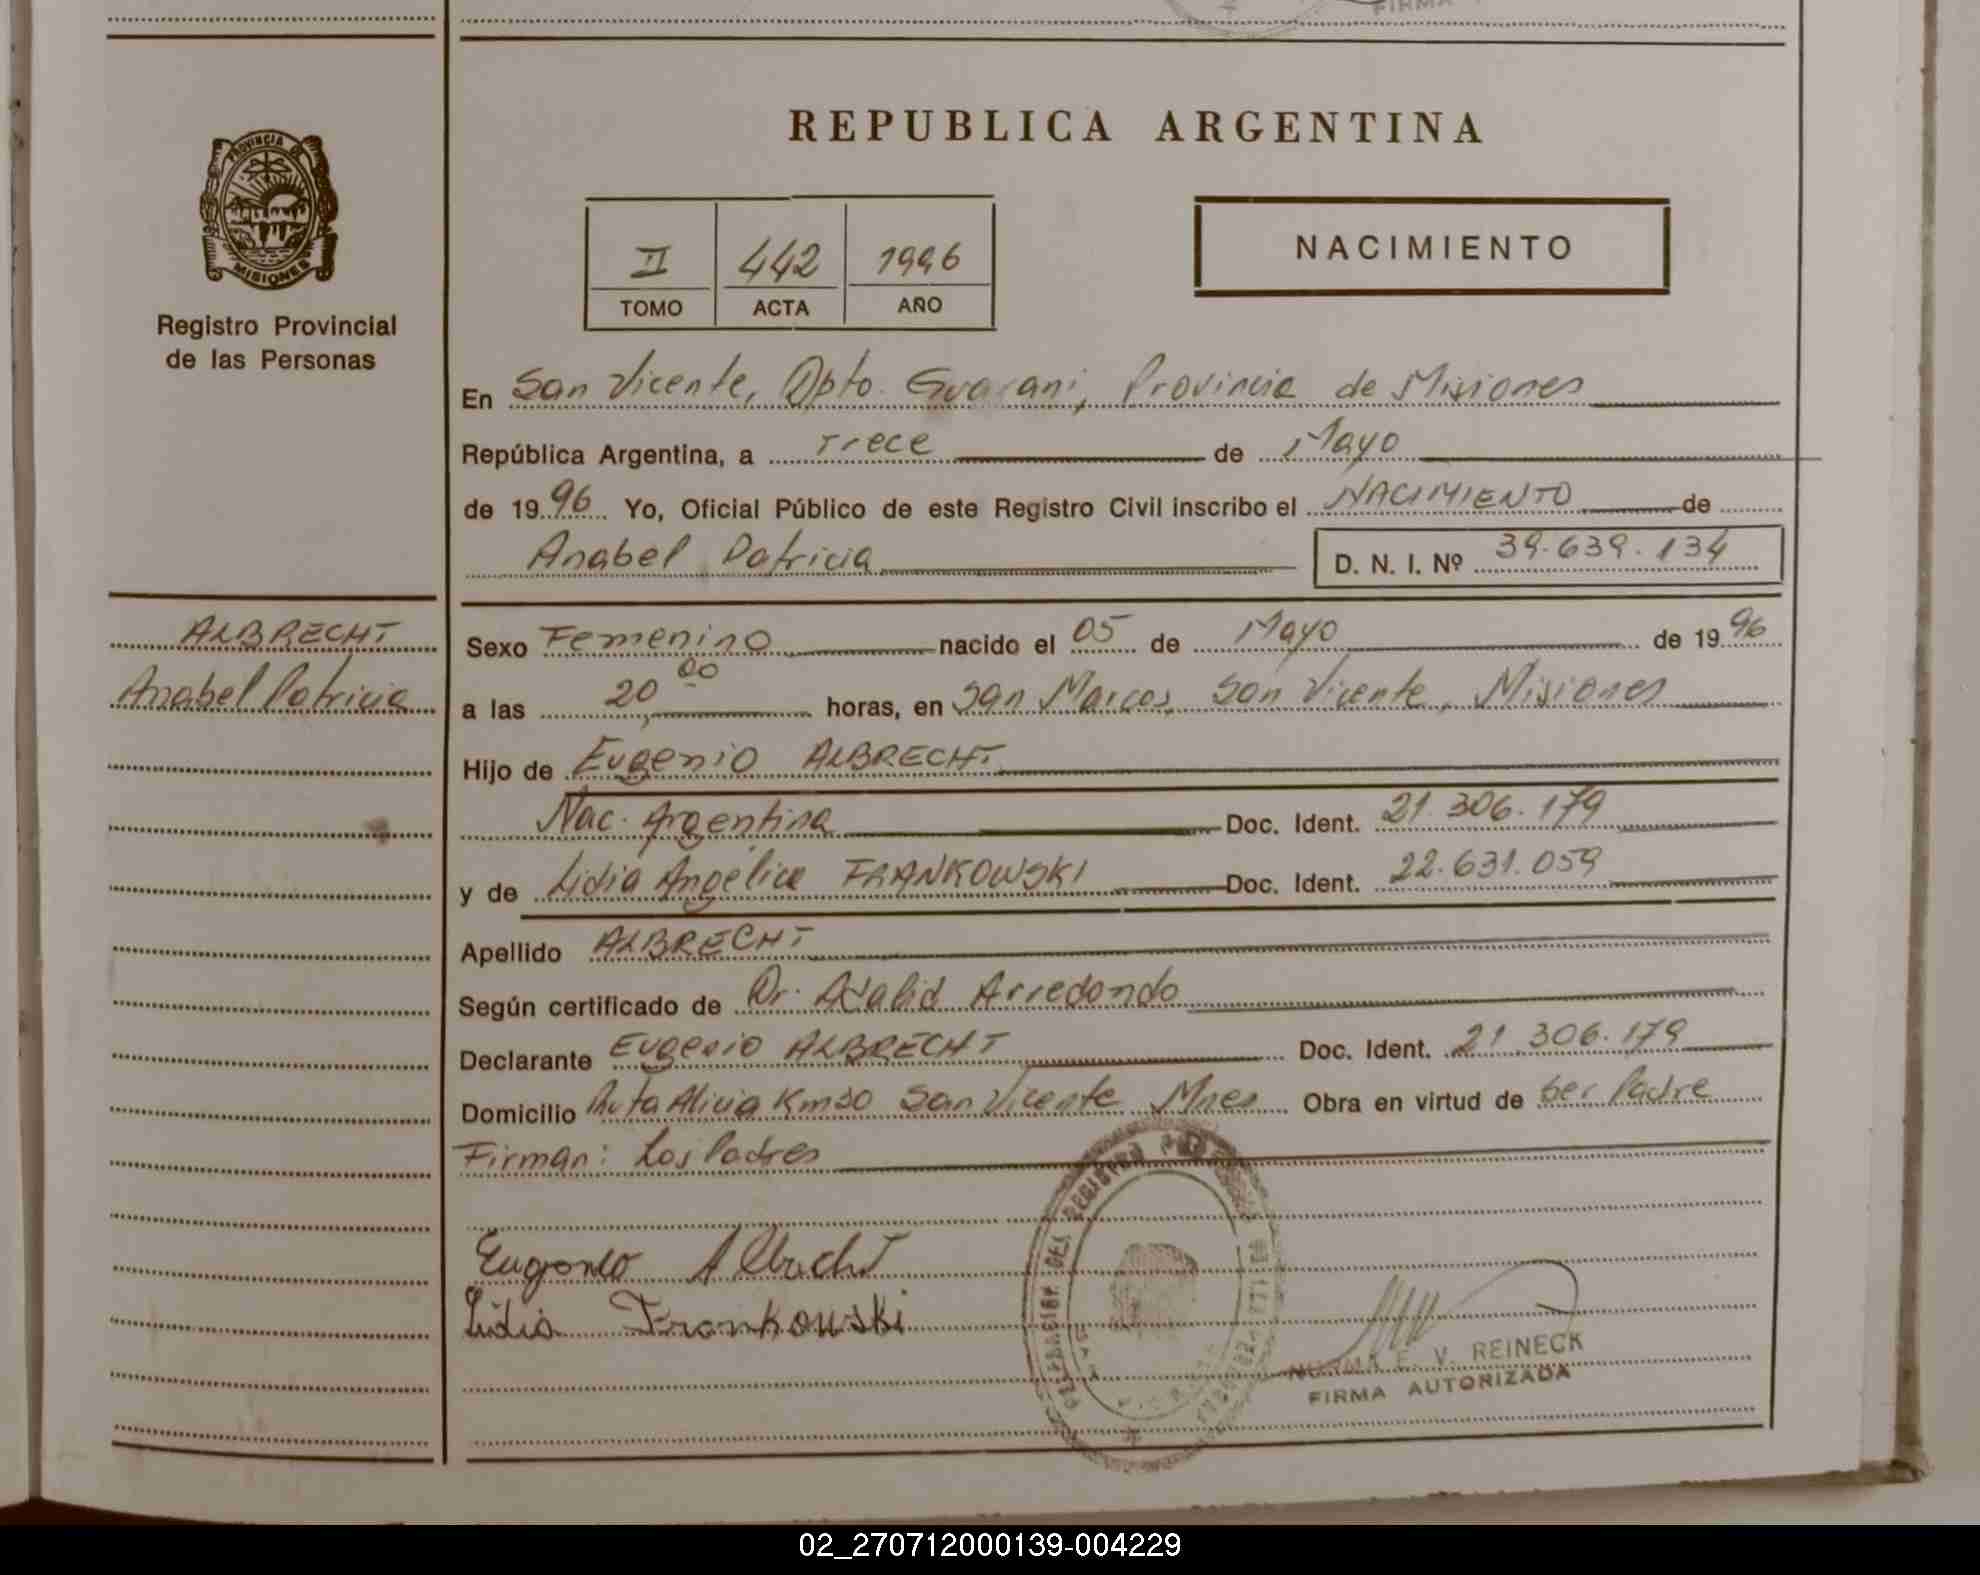 FIRMA
REPUBLICA ARGENTINA
PROVINCIA DE
MISIONES
Registro Provincial
de las Personas
II 442 1996
TOMO ACTA AÑO
NACIMIENTO
En San Vicente, Dpto. Guarani, Provincia de Misiones
República Argentina, a Trece de Mayo
de 1996 Yo, Oficial Público de este Registro Civil inscribo el NACIMIENTO de
Anabel Patricia D. N. I. Nº 39.639.134
ALBRECHT
Anabel Patricia
Sexo Femenino nacido el 05 de Mayo de 1996
a las 20 00 horas, en San Marcos, San Vicente, Misiones
Hijo de Eugenio ALBRECHT
Nac. Argentina Doc. Ident. 21.306.179
y de Lidia Angélica FRANKOWSKI Doc. Ident. 22.631.059
Apellido ALBRECHT
Según certificado de Dr. Arredondo
Declarante Eugenio ALBRECHT Doc. Ident. 21.306.179
Domicilio Ruta Alicia Km30 San Vicente Mnes Obra en virtud de Ser Padre
Firman: Los Padres
Eugenio Albrecht
Lidia Frankowski
NORMA E. V. REINECK
FIRMA AUTORIZADA
02_270712000139-004229